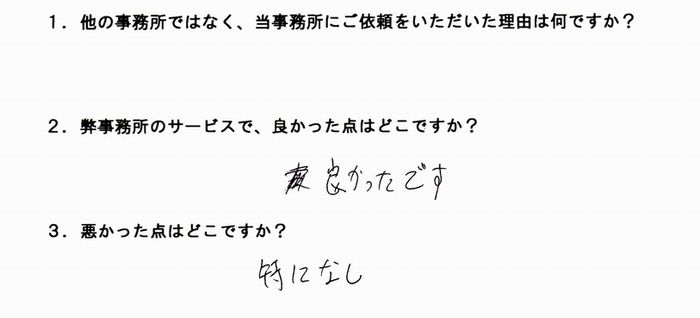 1．他の事務所ではなく、当事務所にご依頼をいただいた理由は何ですか？
2．弊事務所のサービスで、良かった点はどこですか？
良かったです
3．悪かった点はどこですか？
特になし